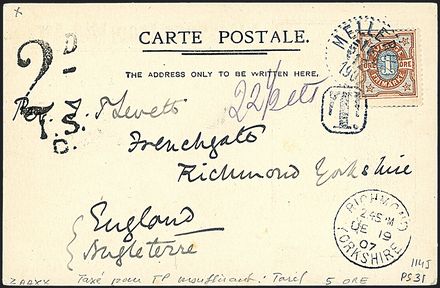 x
CARTE POSTALE.
THE ADDRESS ONLY TO BE WRITTEN HERE.
2D
T.S.
C.
T
22 1/2 cts
T Levett
Frenchgate
Richmond Yorkshire
England
Angleterre
RICHMOND
2.45 PM
DE 19
07
YORKSHIRE
1145
PS31
Taxé pour TP insuffisant: Tarif 5 ORE